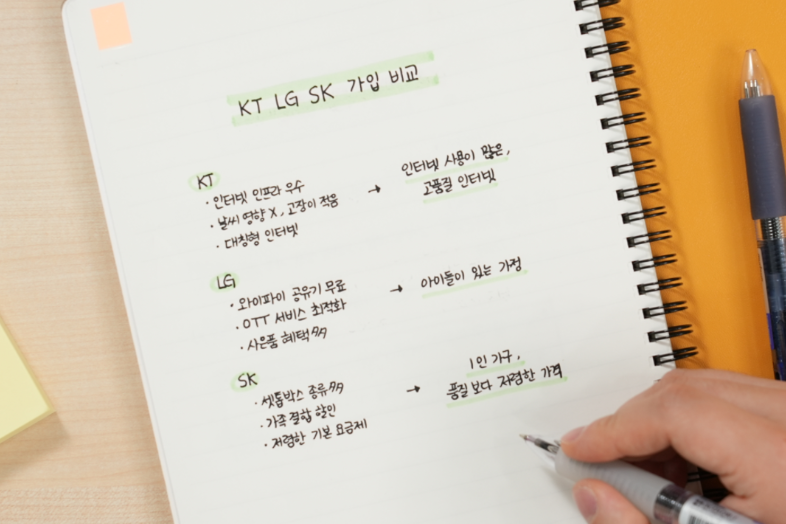 KT LG SK 가입 비교
KT
· 인터넷 인프라 우수
· 날씨 영향 X, 고장이 적음
· 대칭형 인터넷
→ 인터넷 사용이 많은,
고품질 인터넷
LG
· 와이파이 공유기 무료
· OTT 서비스 최적화
· 사은품 혜택 多多
→ 아이들이 있는 가정
SK
· 셋톱박스 종류 多多
· 가족 결합 할인
· 저렴한 기본 요금제
→ 1인 가구,
품질보다 저렴한 가격